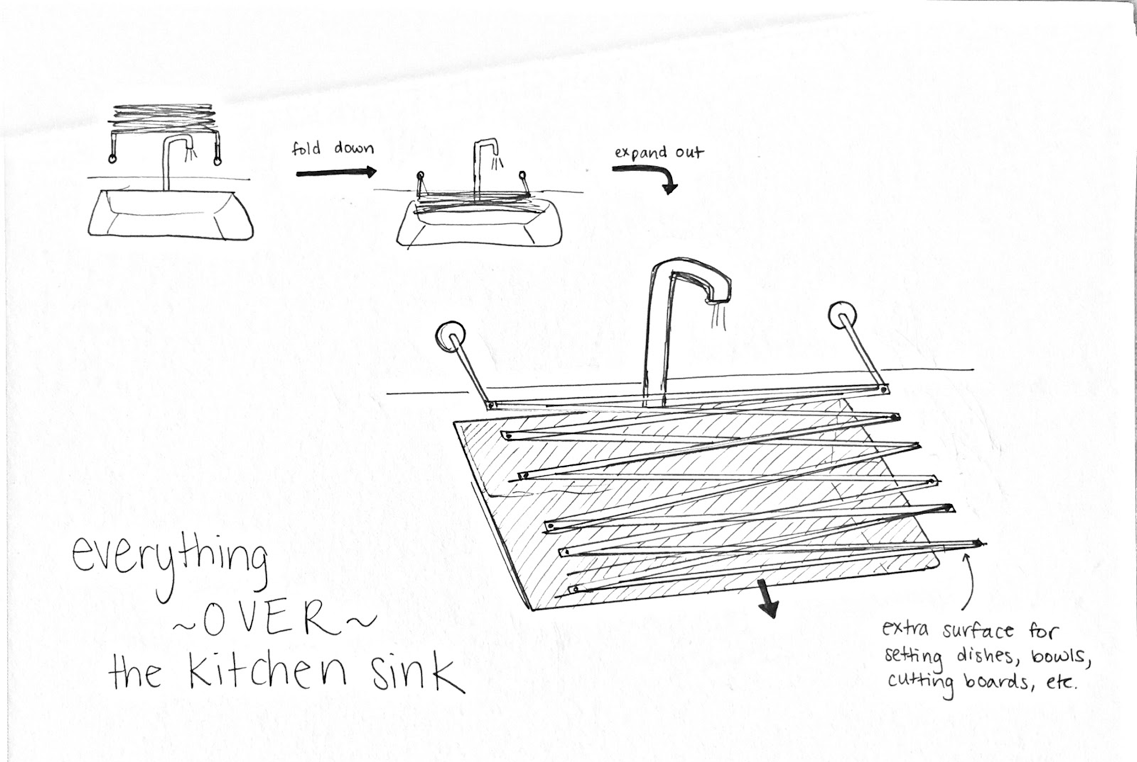 fold down
expand out
everything
~OVER~
the kitchen sink
extra surface for
setting dishes, bowls,
cutting boards, etc.